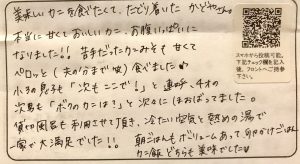 美味しいカニを食べたくて、たどり着いた かどや
本当に甘くておいしいカニ、お腹いっぱいに
なりました!! 苦手だったカニみそも 甘くて
ペロッと(夫の分まで 笑)食べました
小3の息子も「次もここで!」と連呼、4才の
次男も「ボクのカニは?」と次々にほおばってました。
貸切風呂も利用させて頂き、冷たい空気と熱めの湯で
一家が大満足でした!!
朝ごはんもボリュームあって 卵かけごはん
カニ飯 どちらも美味でした
スマホから投稿可能。
下記チェック欄を記入
後、フロントへご持参
下さい。